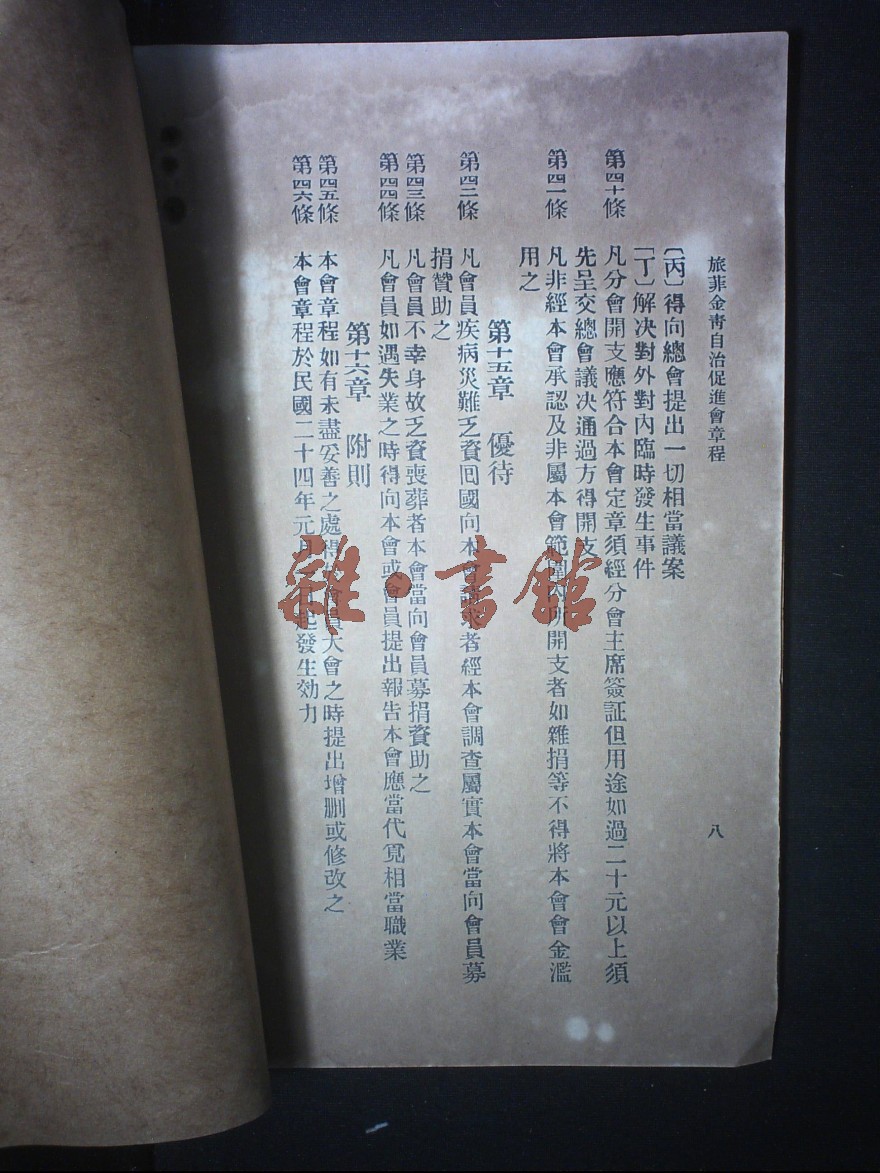 旅菲金青自治促進會章程 八
〔丙〕得向總會提出一切相當議案
〔丁〕解决對外對內臨時發生事件
第四十條 凡分會開支應符合本會定章須經分會主席簽証但用途如過二十元以上須
先呈交總會議决通過方得開支
第四一條 凡非經本會承認及非屬本會範圍內所開支者如雜捐等不得將本會會金濫
用之
第十五章 優待
第四二條 凡會員疾病災難乏資囘國向本會求者經本會調查屬實本會當向會員募
捐贊助之
第四三條 凡會員不幸身故乏資喪葬者本會當向會員募捐資助之
第四四條 凡會員如遇失業之時得向本會或會員提出報告本會應當代覓相當職業
第十六章 附則
第四五條 本會章程如有未盡妥善之處得會員大會之時提出增删或修改之
第四六條 本會章程於民國二十四年元月起發生効力
雜·書館